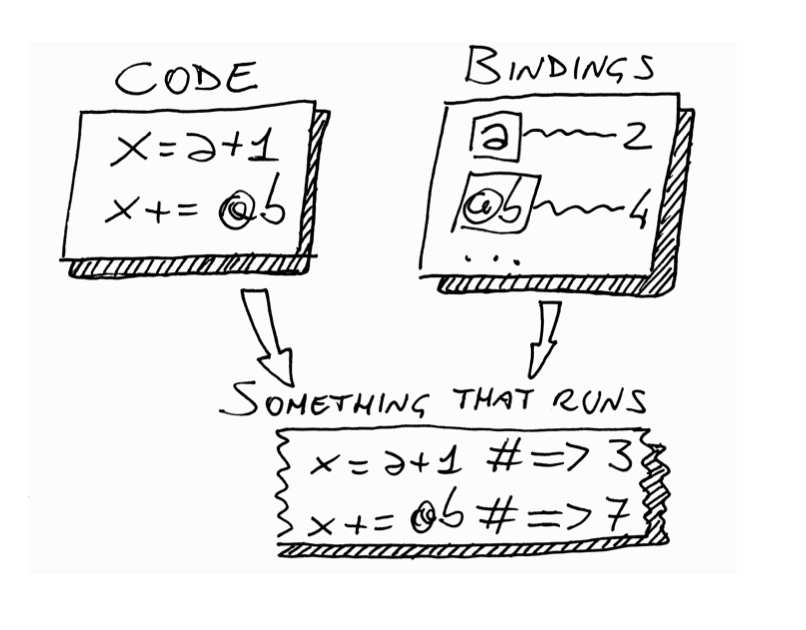 CODE
x = a+1
x += @b
BINDINGS
a 2
@b 4
...
SOMETHING THAT RUNS
x = a+1 #=> 3
x += @b #=> 7